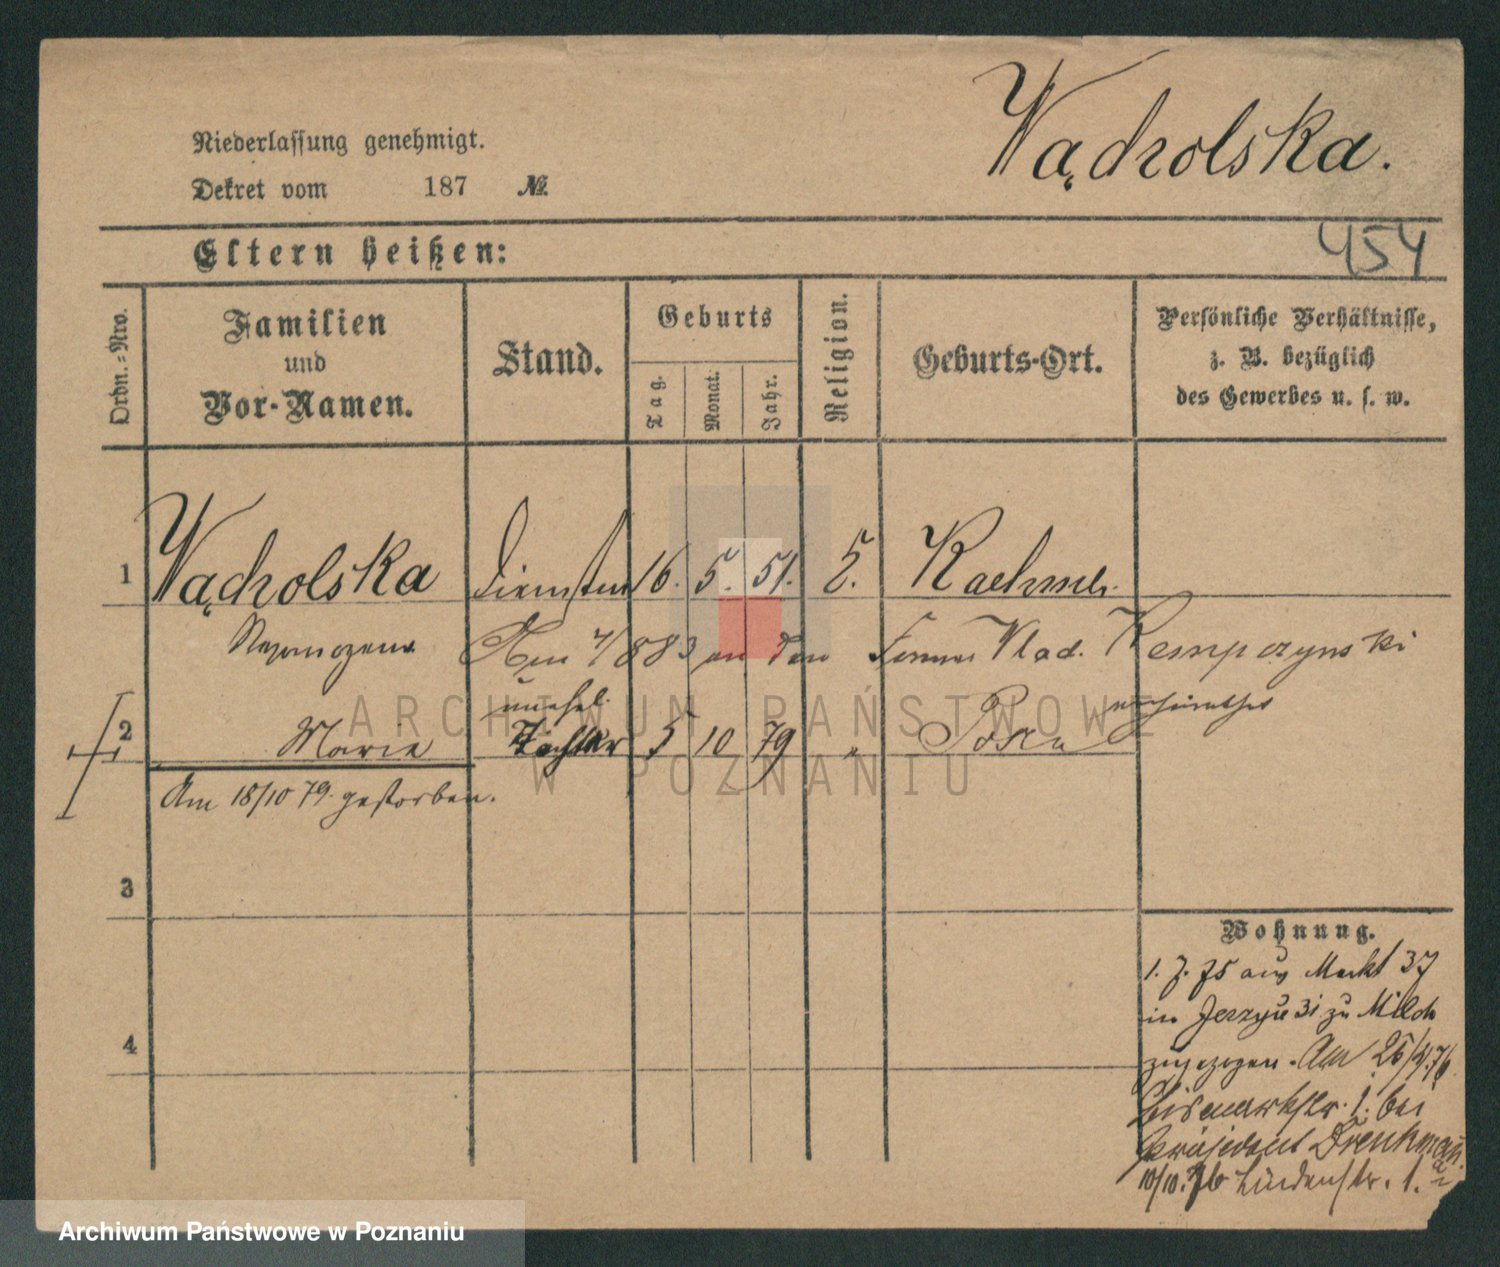 Wądrolska.
Niederlassung genehmigt.
Dekret vom 187 №
454
Eltern heißen:
Ordn.=Nro.
Familien
und
Vor-Namen.
Stand.
Geburts
Tag.
Monat.
Jahr.
Religion.
Geburts-Ort.
Persönliche Verhältnisse,
z. B. bezüglich
des Gewerbes u. s. w.
1 Wądrolska 16. 5. 51.
83 an den Vlad. Kempczynski
unehel.
2 Marie Tochter 5 10 79 " Posen
Am 18/10 79. gestorben.
3
4
Wohnung.
1. 7. 75 aus Markt 37
in Jerzyce 31 zu Milch
zugezogen. Am 25/4.76
Bismarkstr. 1. bei
Präsident Drenkmann.
10/10.76 Lindenstr. 1.
ARCHIWUM PAŃSTWOWE
W POZNANIU
Archiwum Państwowe w Poznaniu